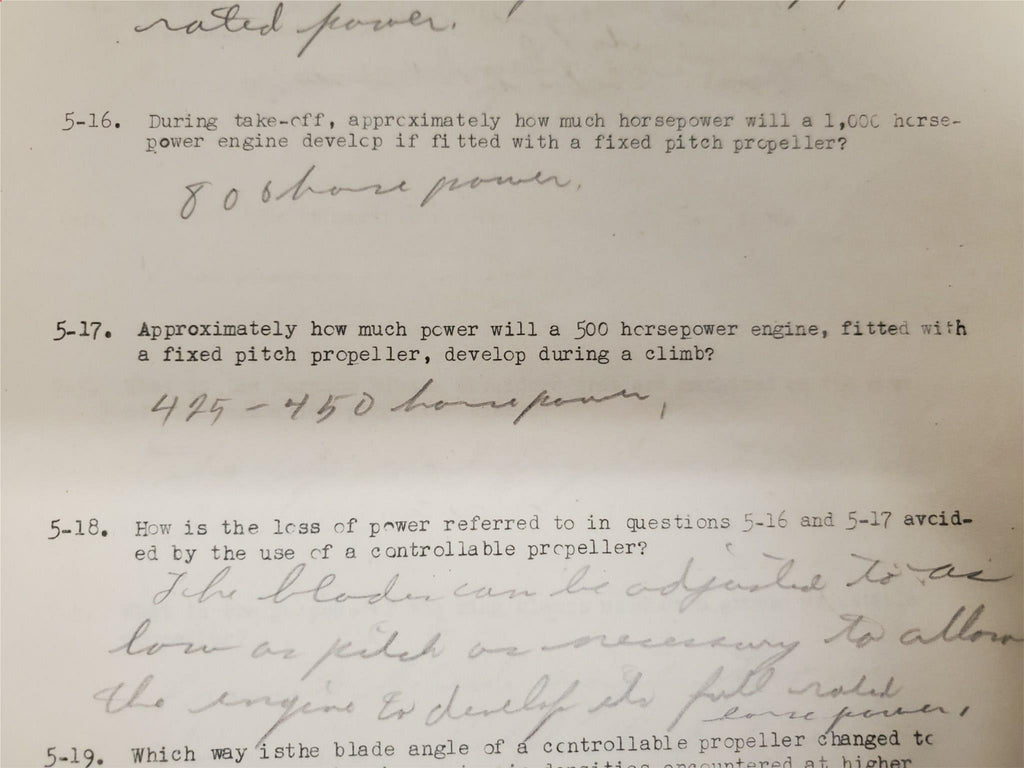 rated power.
5-16. During take-off, approximately how much horsepower will a 1,000 horse-
power engine develop if fitted with a fixed pitch propeller?
800 horse power.
5-17. Approximately how much power will a 500 horsepower engine, fitted with
a fixed pitch propeller, develop during a climb?
425-450 horsepower,
5-18. How is the loss of power referred to in questions 5-16 and 5-17 avoid-
ed by the use of a controllable propeller?
The blades can be adjusted to as
low as pitch as necessary to allow
the engine to develop its full rated
horse power.
5-19. Which way isthe blade angle of a controllable propeller changed to
densities encountered at higher